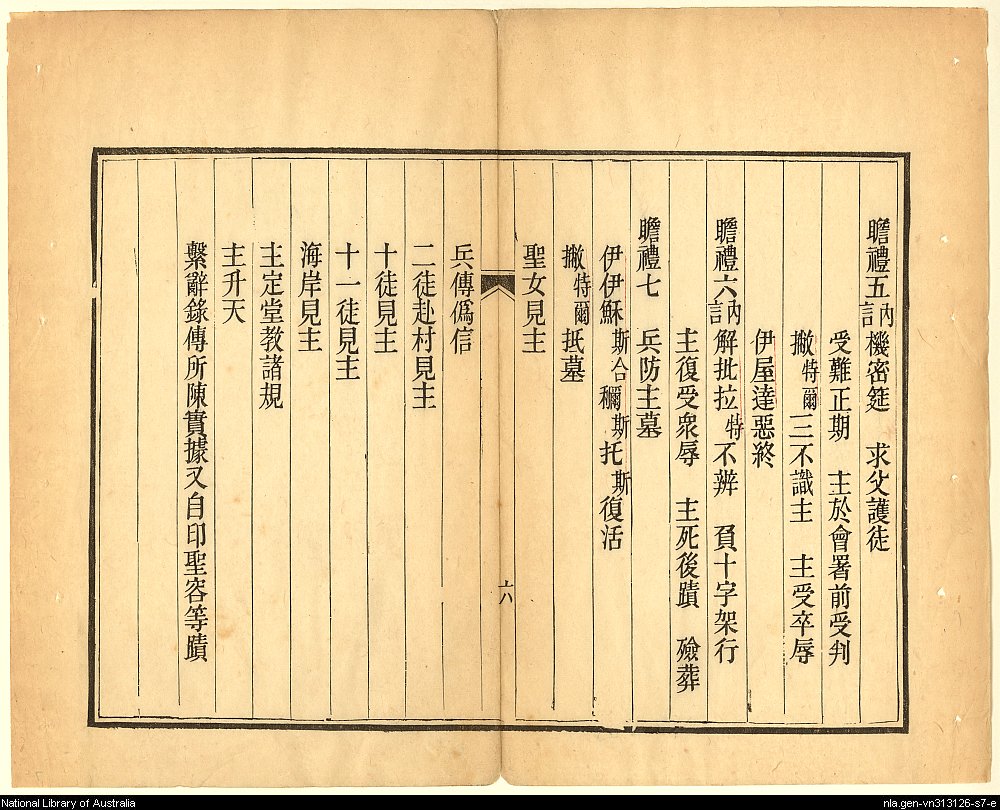 瞻禮五訥機密筵　求父護徒
受難正期　主於會署前受判
撇特爾三不識主　主受卒辱
伊屋達惡終
瞻禮六訥解批拉特不辨　負十字架行
主復受衆辱　主死後蹟　殮葬
瞻禮七　兵防主墓
伊伊穌斯合穪斯托斯復活
撇特爾抵墓
聖女見主
六
兵傳僞信
二徒赴村見主
十徒見主
十一徒見主
海岸見主
主定堂教諸規
主升天
繫辭錄傳所陳實據又自印聖容等蹟
National Library of Australia
nla.gen-vn313126-s7-e